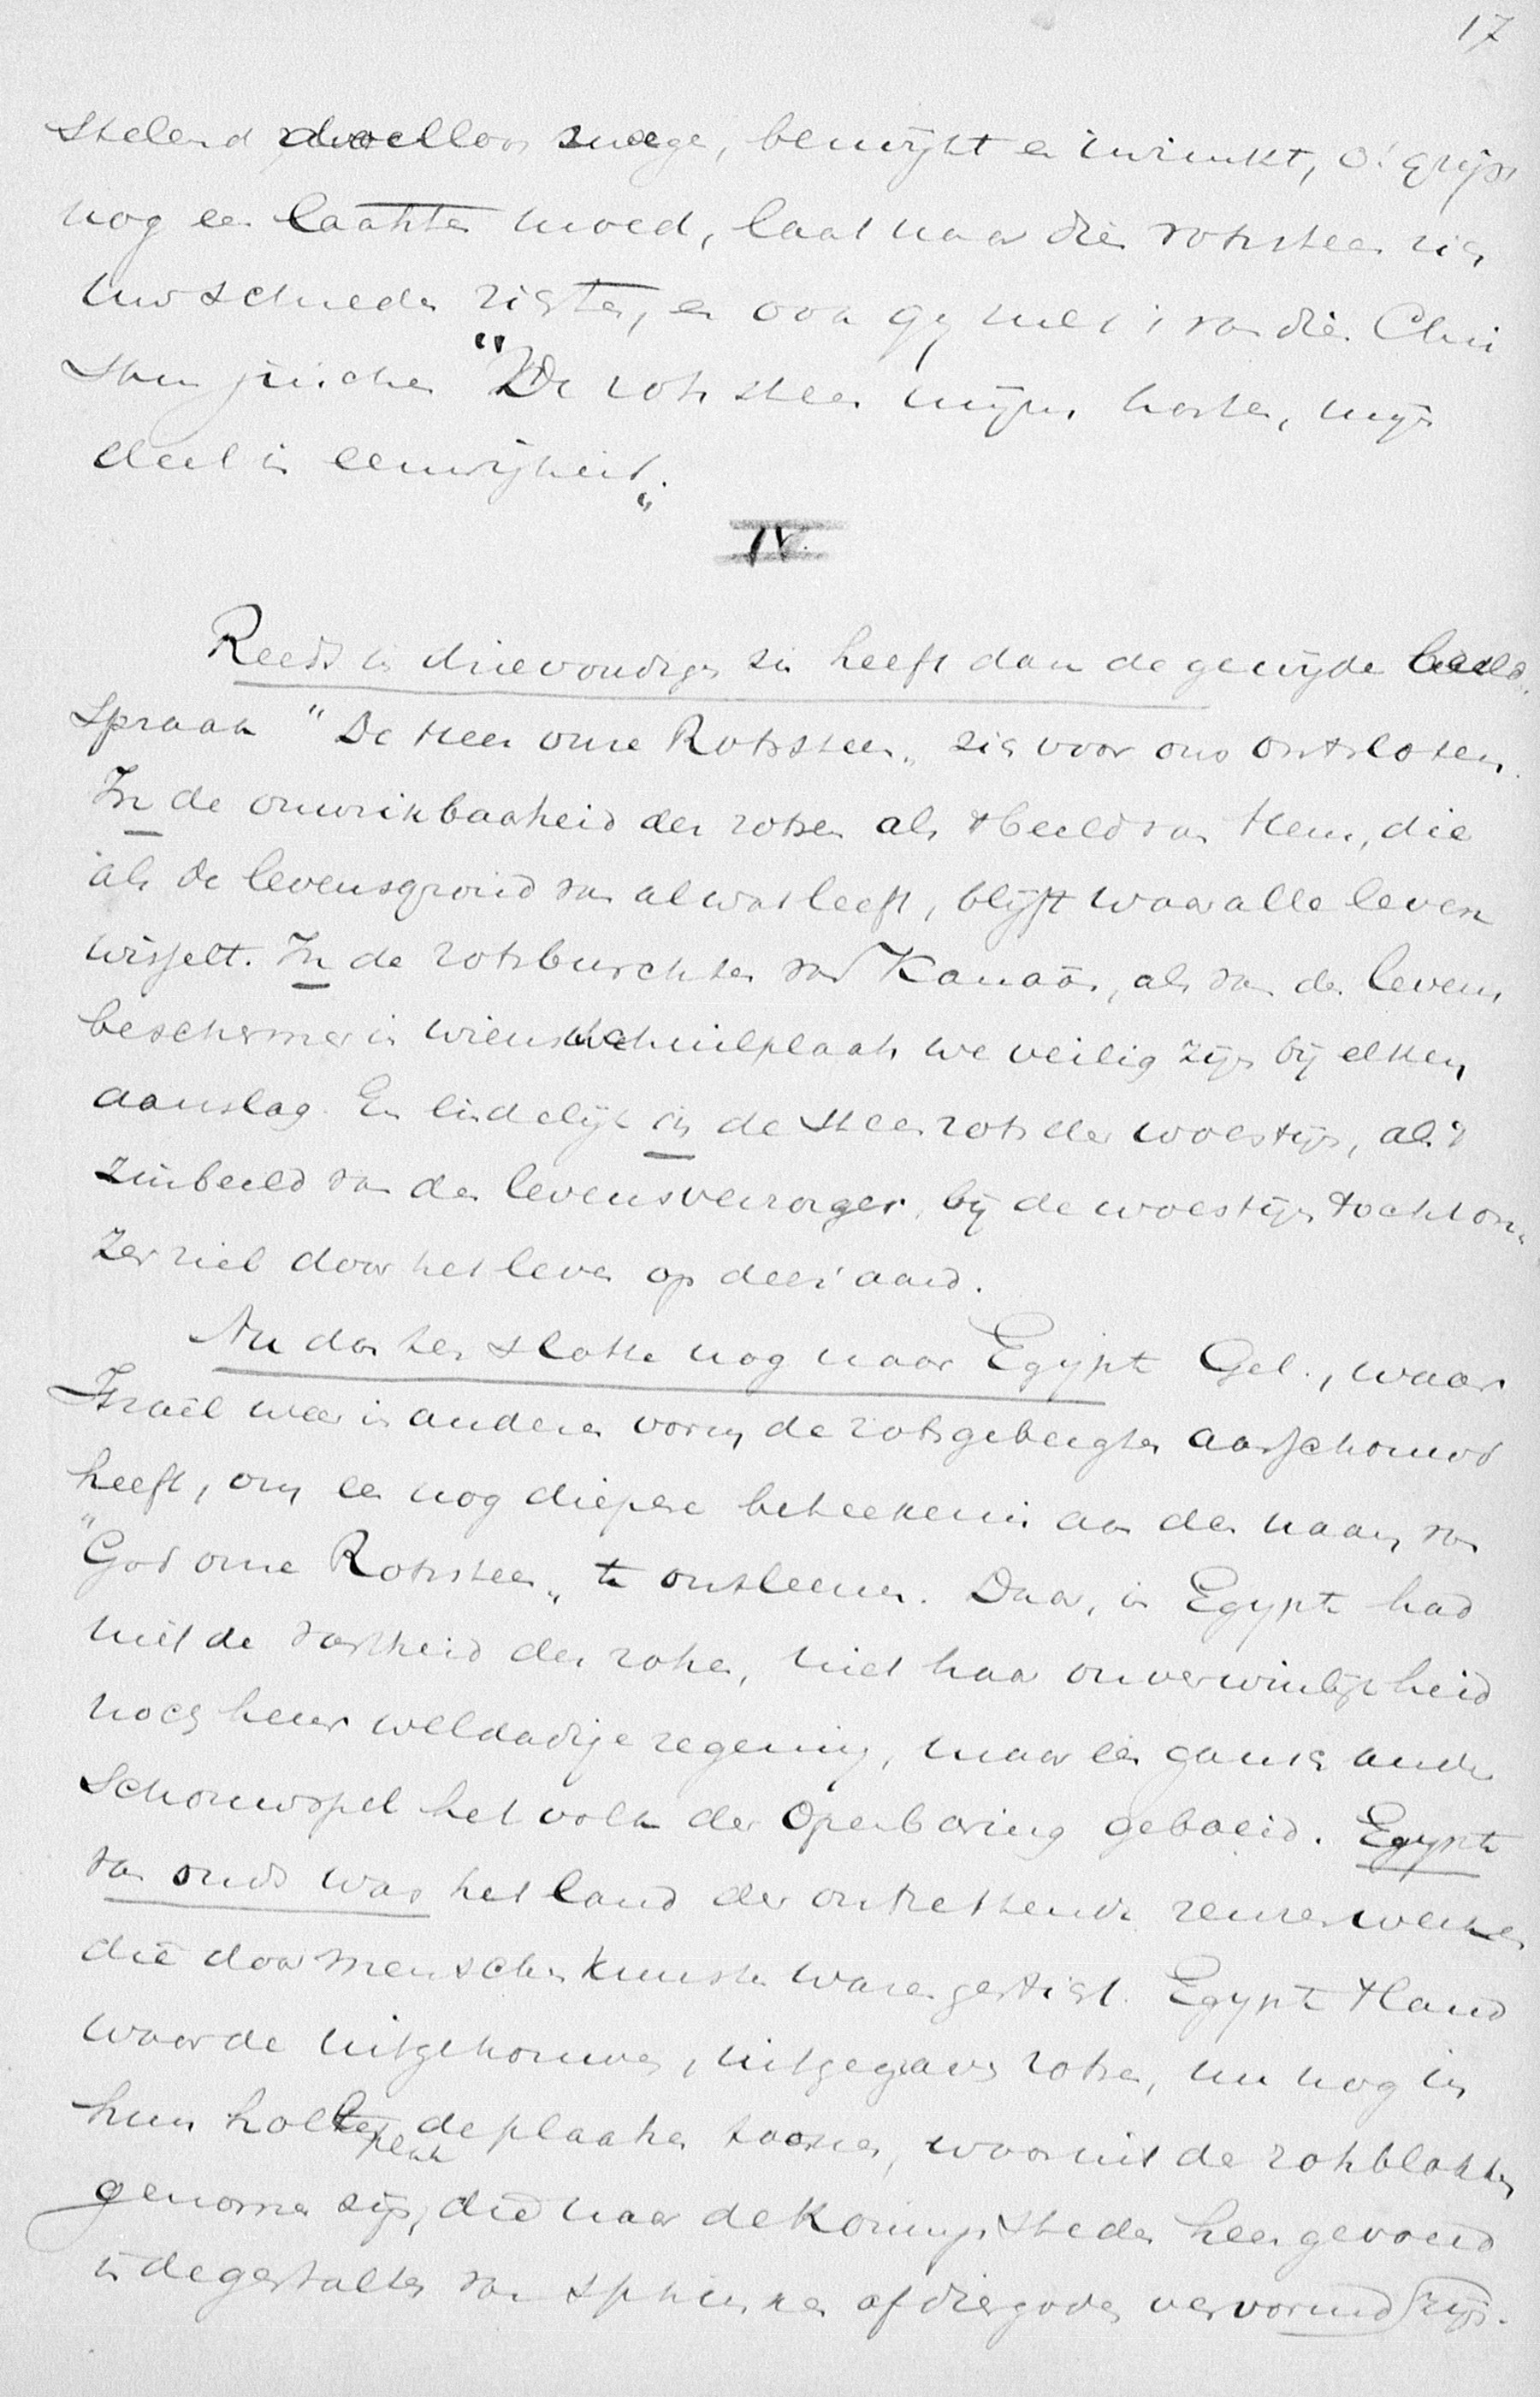 17
stelend doelloos zwerge, bezwijkt en inzinkt, o! grijp
nog een laatsten moed, laat naar dien rotssteen zich
uw schreden rigten, en ook gij zult i van die Chri
sten juichen "De rotssteen mijns harten, mijn
deel in eeuwigheid".
IV.
Reeds in drievoudigen zin heeft dan de gewijde beeld-
spraak "De Heer onze Rotssteen" zich voor ons ontsloten.
In de onwrikbaarheid der rotsen als 't beeld van Hem, die
als de levensgrond van al wat leeft, blijft waar alle leven
wisselt. In de rotsburchten van Kanaän, als van den levens
beschermer in wiens schuilplaats we veilig zijn bij elken
aanslag. En eindelijk in de steenrots der woestijn, als 't
zinbeeld van den levensverzorger, bij de woestijntocht on-
zer ziel door het leven op deez' aard.
Nu dan ten slotte nog naar Egypte Gel., waar
Israël weer in anderen vorm de rotsgebergten aanschouwd
heeft, om een nog diepere beteekenis aan den naam van
"God onze Rotssteen" te ontleenen. Daar, in Egypte had
niet de vastheid der rotsen, niet haar onverwinlijkheid
noch heur weldadige zegening, maar een gansch ander
schouwspel het volk der Openbaring geboeid. Egypte
van ouds was het land der ontzettende reuzenwerken
die door menschenkunst waren gesticht. Egypte 't land
waar de uitgehouwen, uitgegraven rotsen, nu nog in
hun holten de plaatsen toonen, waaruit de rotsblokken
genomen zijn, die naar de Koningssteden heengevoerd
in de gestalten van sphinxen of diergoden vervormd zijn.